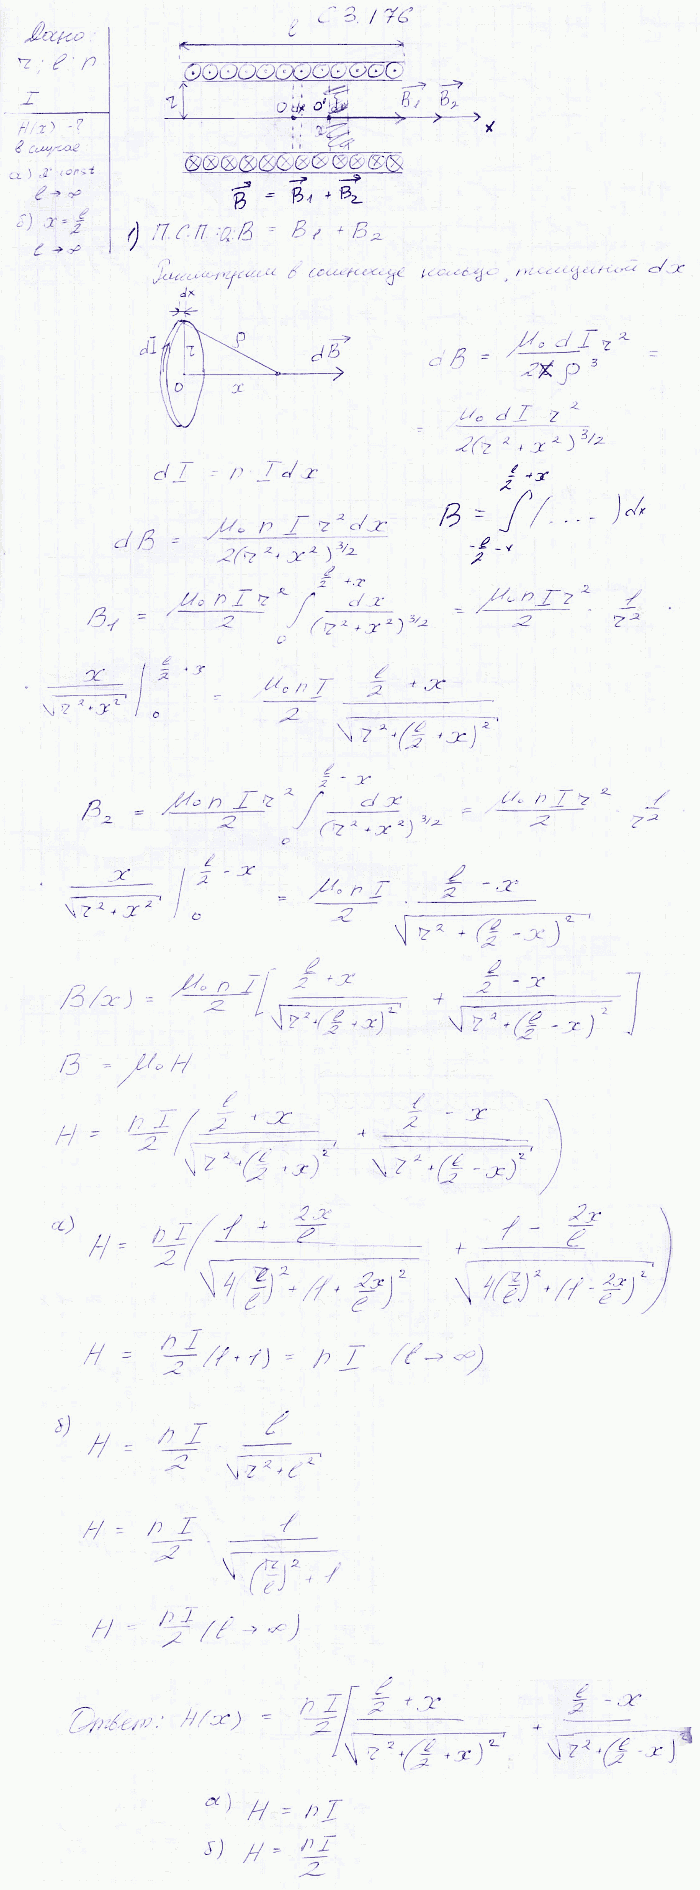 С 3.176
Дано:
r; l; n
I
H(x) - ?
в случае
а) x const
l → ∞
б) x = l/2
l → ∞
l
r
O x O'
x
B₁ B₂
x
B = B₁ + B₂
1) П.С.П.: B = B₁ + B₂
Рассмотрим в соленоиде кольцо, толщиной dx
dx
dI r ρ dB
O x
dB = μ₀ dI r² / 2 ρ³ =
= μ₀ dI r² / 2(r² + x²)^3/2
dI = n · I dx
dB = μ₀ n I r² dx / 2(r² + x²)^3/2
B = ∫_{-l/2 - x}^{l/2 + x} (....) dx
B₁ = μ₀ n I r² / 2 ∫_0^{l/2 + x} dx / (r² + x²)^3/2 = μ₀ n I r² / 2 · 1/r² ·
· x / √(r² + x²) |_0^{l/2 + x} = μ₀ n I / 2 (l/2 + x) / √(r² + (l/2 + x)²)
B₂ = μ₀ n I r² / 2 ∫_0^{l/2 - x} dx / (r² + x²)^3/2 = μ₀ n I r² / 2 · 1/r²
· x / √(r² + x²) |_0^{l/2 - x} = μ₀ n I / 2 · (l/2 - x) / √(r² + (l/2 - x)²)
B(x) = μ₀ n I / 2 [(l/2 + x) / √(r² + (l/2 + x)²) + (l/2 - x) / √(r² + (l/2 - x)²)]
B = μ₀ H
H = n I / 2 ((l/2 + x) / √(r² + (l/2 + x)²) + (l/2 - x) / √(r² + (l/2 - x)²))
а) H = n I / 2 ((1 + 2x/l) / √(4(r/l)² + (1 + 2x/l)²) + (1 - 2x/l) / √(4(r/l)² + (1 - 2x/l)²))
H = n I / 2 (1 + 1) = n I (l → ∞)
б) H = n I / 2 · l / √(r² + l²)
H = n I / 2 · 1 / √((r/l)² + 1)
H = n I / 2 (l → ∞)
Ответ: H(x) = n I / 2 [(l/2 + x) / √(r² + (l/2 + x)²) + (l/2 - x) / √(r² + (l/2 - x)²)
а) H = n I
б) H = n I / 2